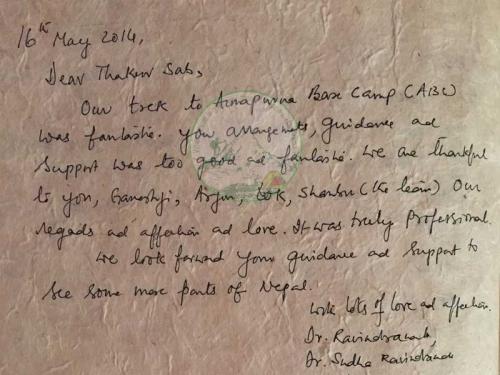 16th May 2014,
Dear Thakur Sab,
Our trek to Annapurna Base Camp (ABC)
was fantastic. Your arrangements, guidance ad
support was too good ad fantastic. We are thankful
to you, Ganeshji, Arjun, Shankar (the team) Our
regads ad affection ad love. It was truly Professional.
We look forward your guidance ad support to
see some more parts of Nepal.
With lots of love ad affection.
Dr. Ravindranath
Dr. Sudha Ravindranath